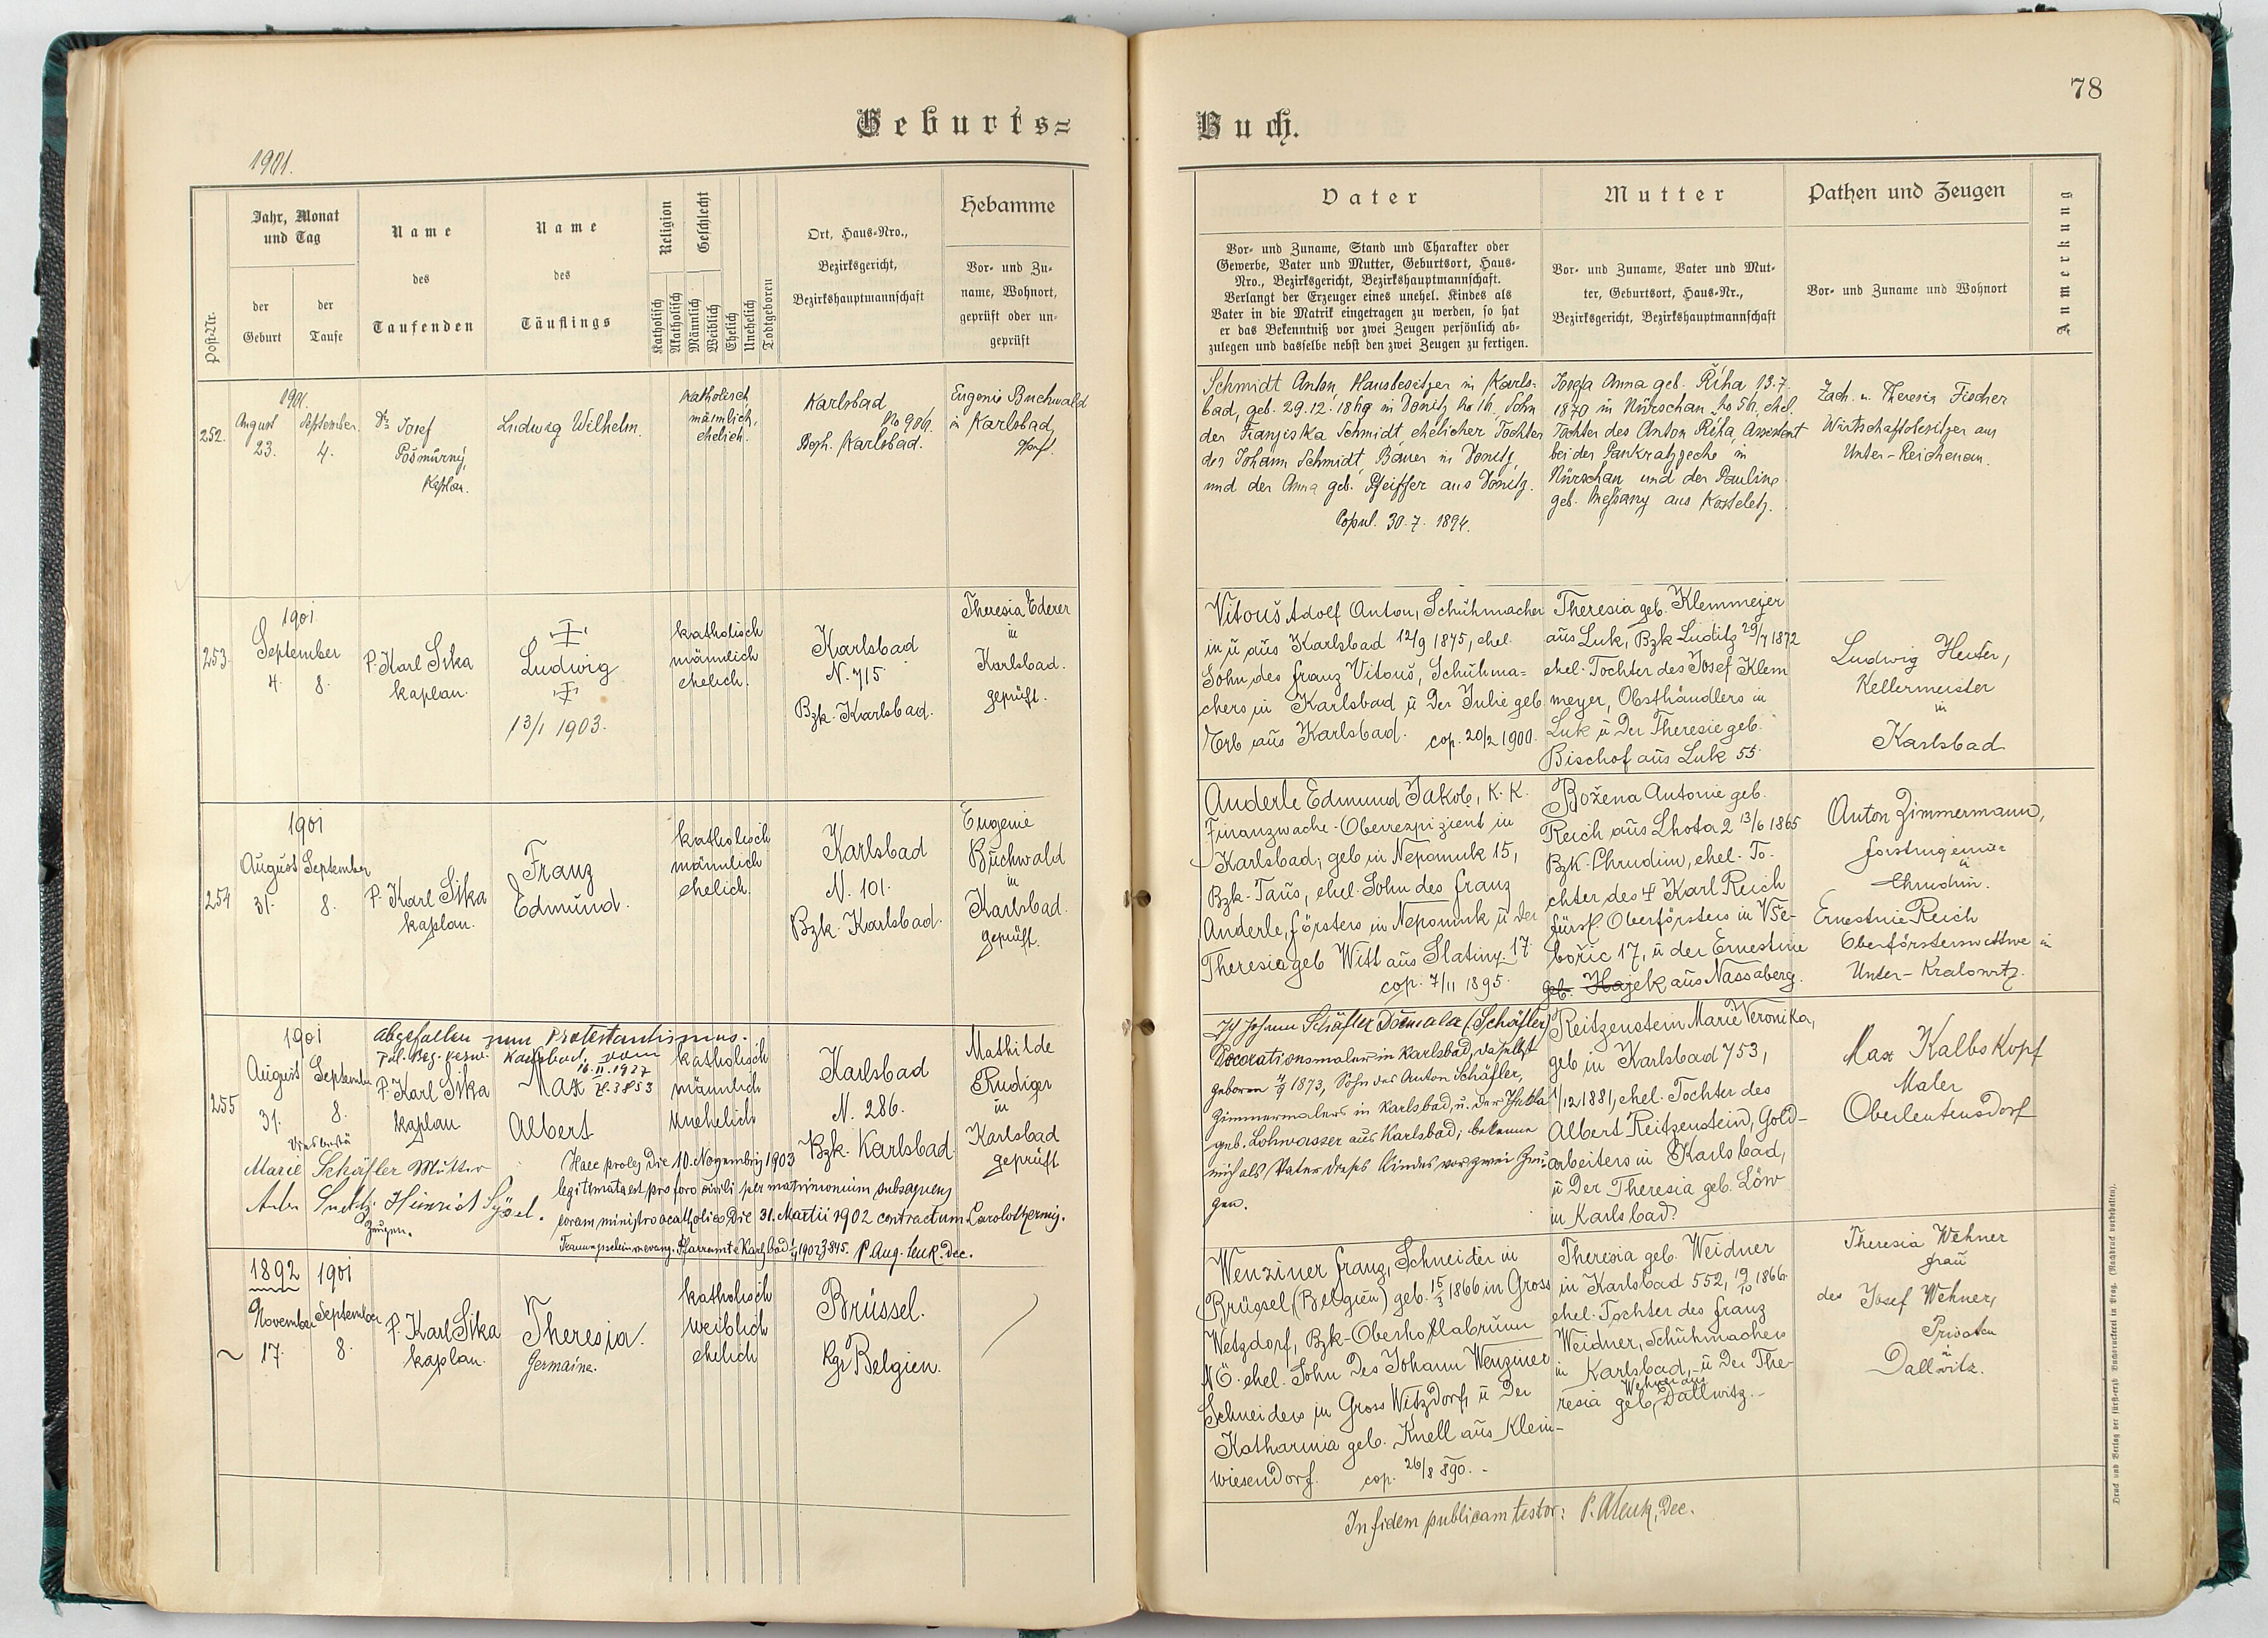 78
Geburts=
Buch.
1901.
Post-Nr.
Jahr, Monat
und Tag
der
Geburt
der
Taufe
Name
des
Taufenden
Name
des
Täuflings
Religion
Katholisch
Akatholisch
Geschlecht
Männlich
Weiblich
Ehelich
Unehelich
Todtgeboren
Ort, Haus-Nro.,
Bezirksgericht,
Bezirkshauptmannschaft
Hebamme
Vor- und Zu-
name, Wohnort,
geprüft oder un-
geprüft
Vater
Vor- und Zuname, Stand und Charakter oder
Gewerbe, Vater und Mutter, Geburtsort, Haus-
Nro., Bezirksgericht, Bezirkshauptmannschaft.
Verlangt der Erzeuger eines unehel. Kindes als
Vater in die Matrik eingetragen zu werden, so hat
er das Bekenntniß vor zwei Zeugen persönlich ab-
zulegen und dasselbe nebst den zwei Zeugen zu fertigen.
Mutter
Vor- und Zuname, Vater und Mut-
ter, Geburtsort, Haus-Nr.,
Bezirksgericht, Bezirkshauptmannschaft
Pathen und Zeugen
Vor- und Zuname und Wohnort
Anmerkung
252.
1901.
August
23.
September.
4.
Josef
Pošmurný,
Kaplan.
Ludwig Wilhelm.
katholisch,
männlich,
ehelich.
Karlsbad
No 906.
Bezh. Karlsbad.
Eugenie Buchwald
in Karlsbad,
gepft.
Schmidt Anton, Hausbesitzer in Karls-
bad, geb. 29.12.1869 in Donitz No 16, Sohn
der Franziska Schmidt ehelicher Tochter
des Johann Schmidt, Bauer in Donitz,
und der Anna geb. Pfeiffer aus Donitz.
Copul. 30.7.1894.
Anna geb. Říha 13.7.
1870 in Nürschan No 56, ehel.
Tochter des Anton Říha, Assistent
bei der Pankrazzeche in
Nürschan und der Pauline
geb. aus Kosteletz.
Zach. u. Theresia Fischer
Wirtschaftsbesitzer aus
Unter-Reichenau.
253.
1901
September
4. 8.
P. Karl Sika
kaplan.
Ludwig
13/1 1903.
katholisch
männlich
ehelich.
Karlsbad
N. 715
Bzk. Karlsbad.
Theresia Ederer
in
Karlsbad.
geprüft.
Vitouš Adolf Anton, Schuhmacher
in u aus Karlsbad 12/9 1875, ehel.
Sohn des Franz Vitouš, Schuhma=
chers in Karlsbad u der Julie geb
Erb aus Karlsbad. cop. 20/2 1900.
Theresia geb. Klemmeyer
aus Luk, Bzk Luditz 29/7 1872
ehel. Tochter des Josef Klem
meyer, Obsthändlers in
Luk u der Theresie geb.
Bischof aus Luk 55
Ludwig Heuter,
Kellermeister
in
Karlsbad
254
1901
August
31.
September
8.
P. Karl Sika
kaplan.
Franz
Edmund.
katholisch
männlich
ehelich.
Karlsbad
N. 101.
Bzk. Karlsbad.
Eugenie
Buchwald
in
Karlsbad.
geprüft.
Anderle Edmund Jakob, K. K.
Finanzwache-Oberrespizient in
Karlsbad; geb in Nepomuk 15,
Bzk-Taus, ehel. Sohn des Franz
Anderle, Försters in Nepomuk u der
Theresia geb Witt aus Slatiny 17.
cop. 7/11 1895.
Božena Antonie geb.
Reich aus Lhota 2 13/6 1865
Bzk. Chrudim, ehel. To-
chter des Karl Reich
fürstl. Oberförsters in Vše-
bořic 17, u der Ernestine
geb. Hajek aus Nassaberg.
Anton Zimmermann,
Forstingenie=
Chrudim.
Ernestine Reich
Oberförsterswittwe in
Unter-Kralowitz.
255
1901
August
31.
September
8.
abgefallen zum Protestantismus.
Pol. Bez. Karlsbad, vom
16.II.1927
Z. 5853
P. Karl Sika
kaplan
Max
Albert
katholisch
männlich
unehelich
Karlsbad
N. 286.
Bzk. Karlsbad.
Mathilde
Rudiger
in
Karlsbad
geprüft
Marie Schäfler Mutter
Heinrich
Zeugen.
Haec proles die 10. Novembris 1903
legitimata est pro foro civili per matrimonium subsequens
coram ministro acatholico die 31. Martii 1902 contractum Carolothermis.
Trauungsschein v evang. Pfarramte Karlsbad 1902 Z 845. P Aug. Dec.
Ich Johann Schäfler Domala (Schäfler)
Decorationsmaler in Karlsbad, daselbst
geboren 1873, Sohn des Anton Schäfler,
Zimmermalers in Karlsbad, u. der Thekla
geb. Lohwasser aus Karlsbad; bekenne
mich als Vater dieses Kindes vor zwei Zeu=
gen.
Reitzenstein Marie Veronika,
geb in Karlsbad 753,
1/12 1881, ehel. Tochter des
Albert Reitzenstein, Gold-
arbeiters in Karlsbad,
u der Theresia geb. Löw
in Karlsbad.
Max Kalbskopf
Maler
Oberleutensdorf
1892
November
17.
1901
September
8.
P. Karl Sika
kaplan.
Theresia.
Germaine.
katholisch
weiblich
ehelich
Brüssel.
Kgr Belgien.
Wenziner Franz, Schneider in
Brüssel (Belgien) geb. 15/3 1866 in Gross
Wetzdorf, Bzk-Oberhollabrunn
NÖ. ehel. Sohn des Johann Wenziner
Schneiders in Gross Witzdorf, u der
Katharina geb. Knell aus Klein-
wiesendorf. cop. 26/8 890.-
Theresia geb. Weidner
in Karlsbad 552, 19/10 1866.
ehel. Tochter des Franz
Weidner, Schuhmachers
in Karlsbad, u der The-
resia geb. Wehner aus Dallwitz.-
Theresia Wehner
Frau
des Josef Wehner,
Privaten
in
Dallwitz.
In fidem publicam testor: P. Dec.
Druck und Verlag der fürst-erzb Buchdruckerei in Prag. (Nachdruck vorbehalten).